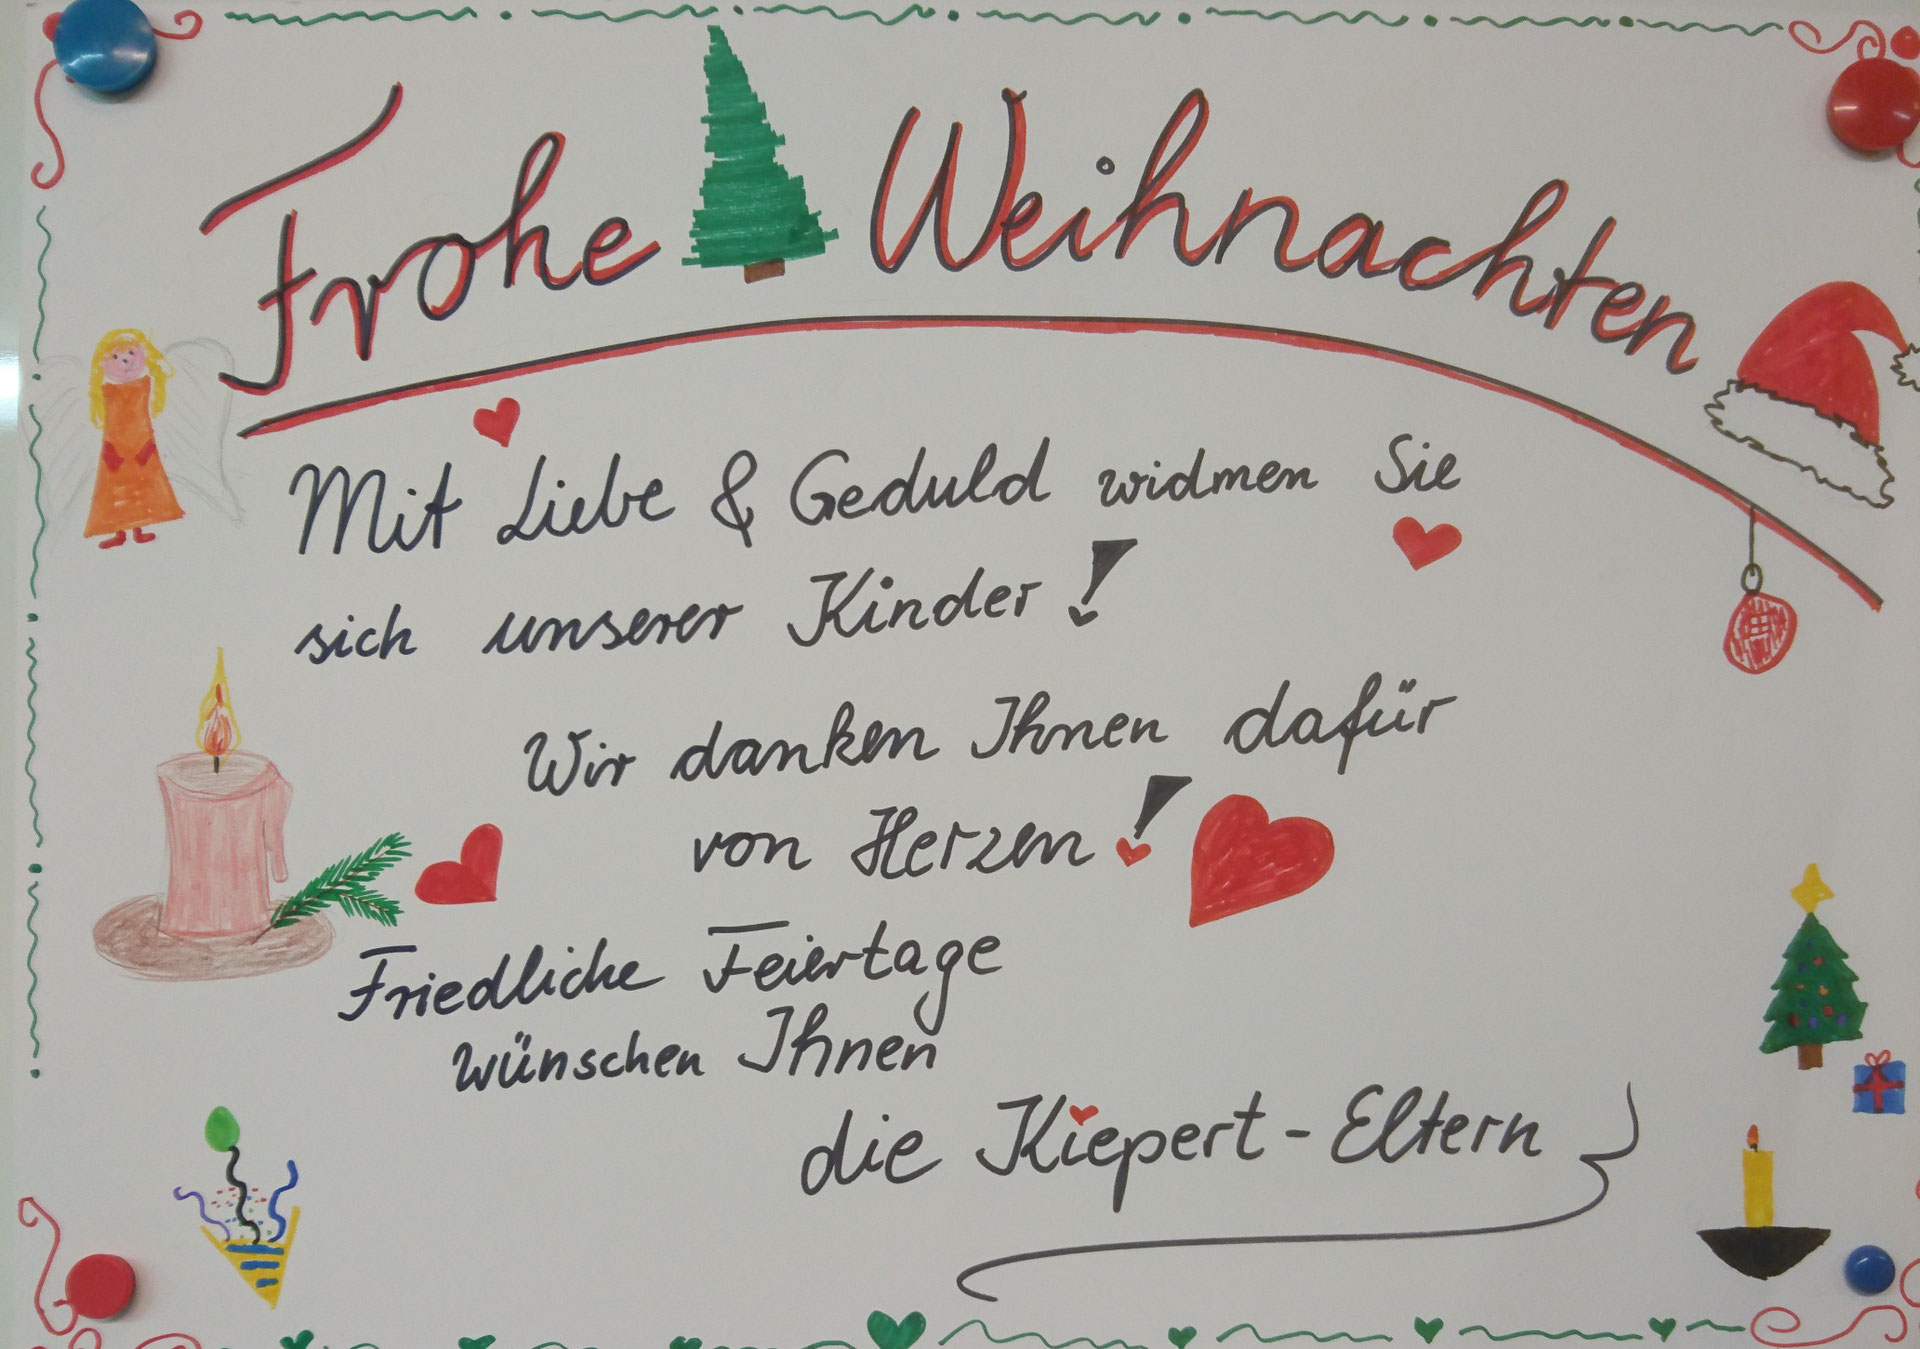 Frohe Weihnachten
Mit Liebe & Geduld widmen Sie
sich unserer Kinder!
Wir danken Ihnen dafür
von Herzen!
Friedliche Feiertage
wünschen Ihnen
die Kiepert-Eltern